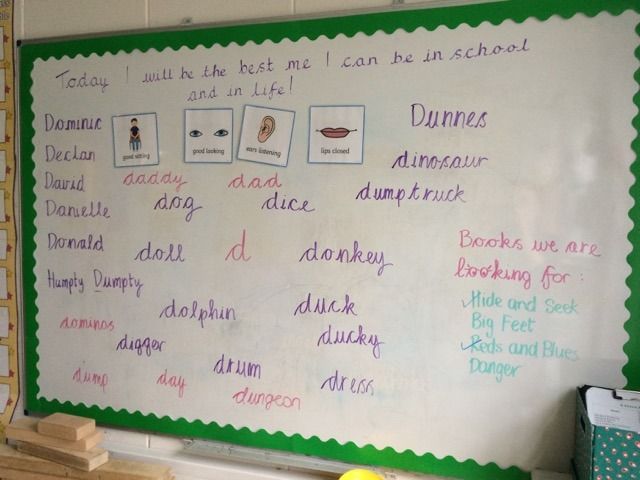 Today I will be the best me I can be in school
and in life!
Dominic
good sitting
good looking
ears listening
lips closed
Dunnes
Declan
dinosaur
David
daddy
dad
dumptruck
Danielle
dog
dice
Donald
doll
d
donkey
Books we are
looking for:
Humpty Dumpty
dolphin
duck
Hide and Seek
Big Feet
dominos
digger
ducky
Reds and Blues
Danger
dump
day
drum
dress
dungeon